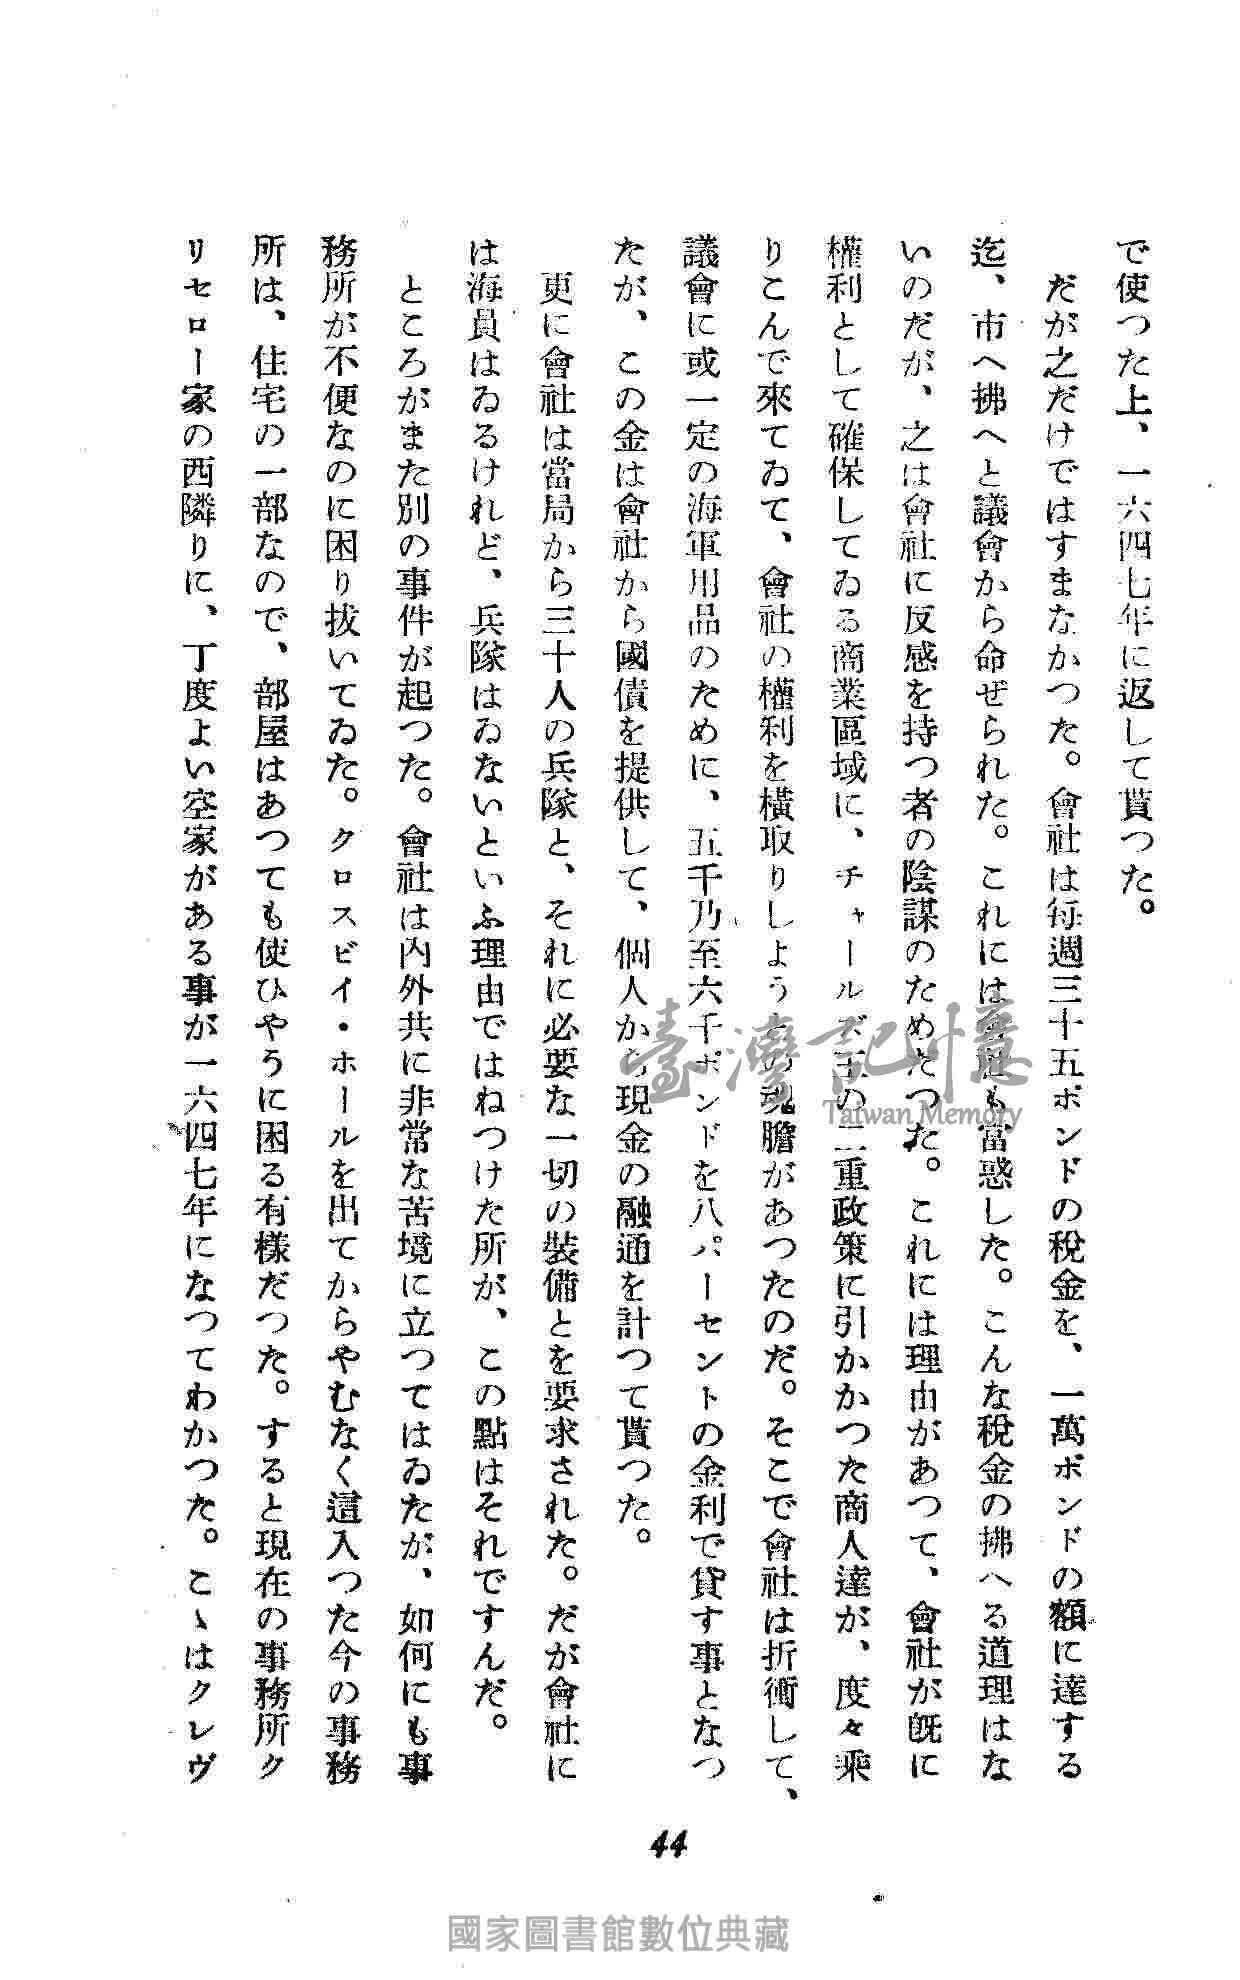 で使つた上、一六四七年に返して貰つた。
だが之だけではすまなかつた。會社は毎週三十五ポンドの稅金を、一萬ポンドの額に達する
迄、市へ拂へと議會から命ぜられた。これには會社も當惑した。こんな稅金の拂へる道理はな
いのだが、之は會社に反感を持つ者の陰謀のためだつた。これには理由があつて、會社が旣に
權利として確保してゐる商業區域に、チャールズ王の二重政策に引かかつた商人達が、度々乘
りこんで來てゐて、會社の權利を橫取りしようとの魂膽があつたのだ。そこで會社は折衝して、
議會に或一定の海軍用品のために、五千乃至六千ポンドを八パーセントの金利で貸す事となつ
たが、この金は會社から國債を提供して、個人から現金の融通を計つて貰つた。
更に會社は當局から三十人の兵隊と、それに必要な一切の裝備とを要求された。だが會社に
は海員はゐるけれど、兵隊はゐないといふ理由ではねつけた所が、この點はそれですんだ。
ところがまた別の事件が起つた。會社は內外共に非常な苦境に立つてはゐたが、如何にも事
務所が不便なのに困り拔いてゐた。クロスビイ・ホールを出てからやむなく這入つた今の事務
所は、住宅の一部なので、部屋はあつても使ひやうに困る有樣だつた。すると現在の事務所ク
リセロー家の西隣りに、丁度よい空家がある事が一六四七年になつてわかつた。こゝはクレヴ
44
臺灣記憶
Taiwan Memory
國家圖書館數位典藏